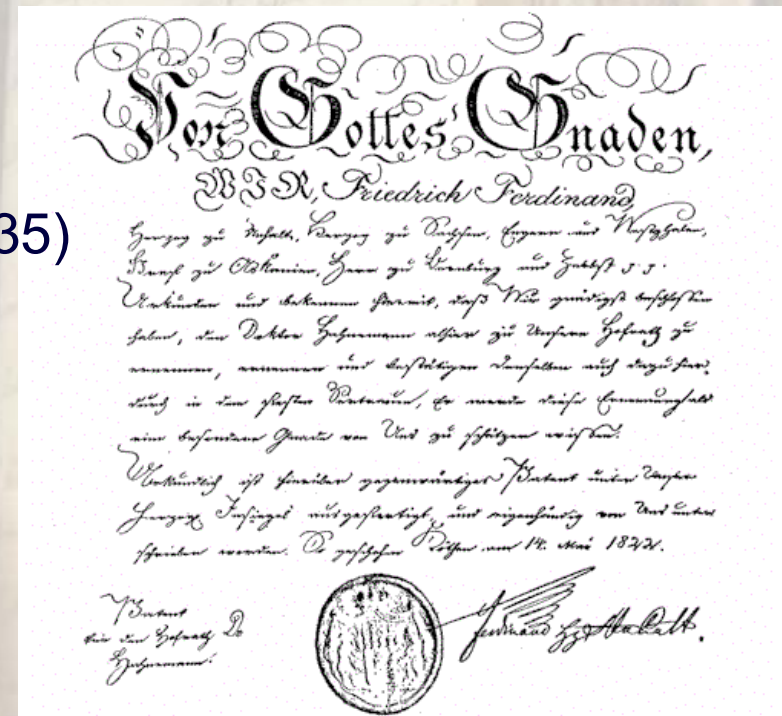 Von Gottes Gnaden,
WIR, Friedrich Ferdinand,
35)
Herzog zu Anhalt, Herzog zu Sachsen, Engern und Westphalen,
Graf zu Askanien, Herr zu Bernburg und Zerbst p. p.
Urkunden und bekennen hiermit, daß Wir gnädigst beschlossen
haben, den Doktor Hahnemann alhier zu Unserm Hofrath zu
ernennen, ernennen und bestätigen denselben auch dazu hier-
durch in dem festen Vertrauen, Er werde diese Ernennung als
eine besondere Gnade von Uns zu schätzen wissen.
Urkundlich ist hierüber gegenwärtiges Patent unter Unserm
Herzogl. Insiegel ausgefertigt, und eigenhändig von Uns unter-
schrieben worden. So geschehen Köthen am 14. Mai 1822.
Patent
für den Hofrath D.
Hahnemann.
Ferdinand Hz Anhalt.